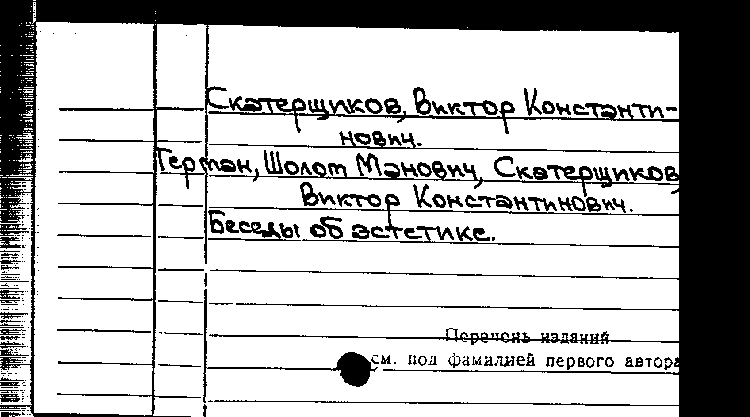 Скатерщиков, Виктор Константи-
нович.
Герман, Шолом Манович, Скатерщиков,
Виктор Константинович.
Беседы об эстетике.
Перечень изданий
см. под фамилией первого автора